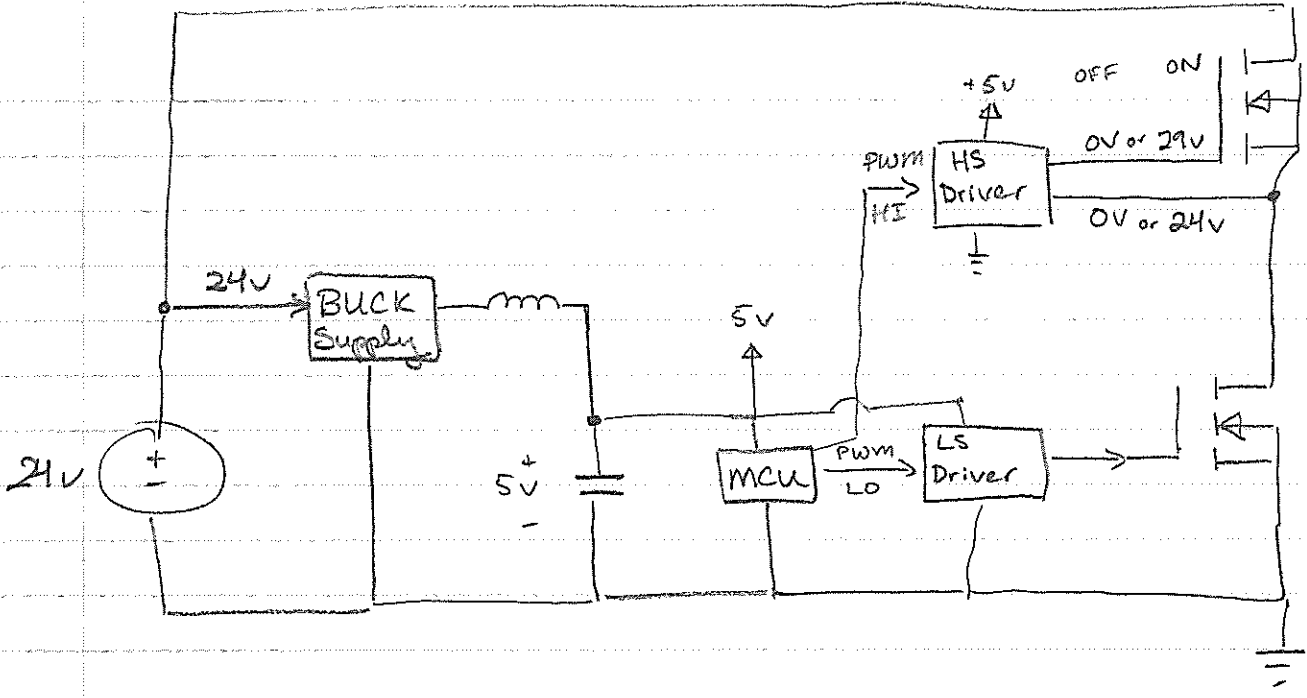 +5v
OFF ON
0V or 29v
PWM
HI
HS
Driver
0V or 24v
24v
BUCK
Supply
5v
24v
+
-
+
5v
-
MCU
PWM
LO
LS
Driver